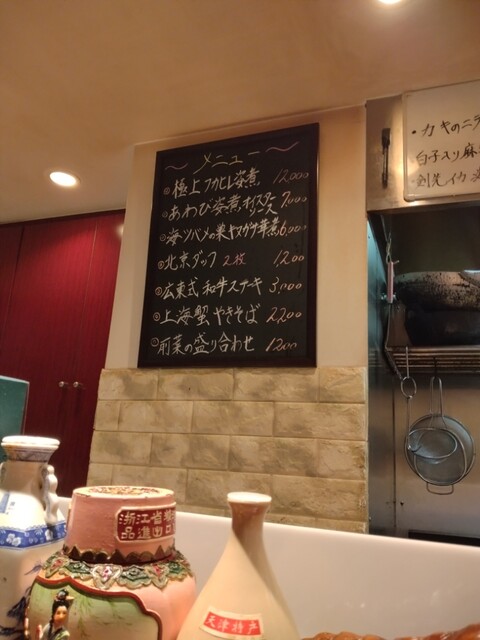 ～メニュー～
◎極上フカヒレ姿煮 12,000
◎あわび姿煮オイスターソース 7,000
◎海ツバメの巣キヌガサ茸煮 6,000
◎北京ダック 2枚 1,200
◎広東式和牛ステーキ 3,000
◎上海蟹やきそば 2,200
◎前菜の盛り合わせ 1200
・カキのニラ
白子入り麻
・剣先イカ
浙江省
品進出口
天津特产